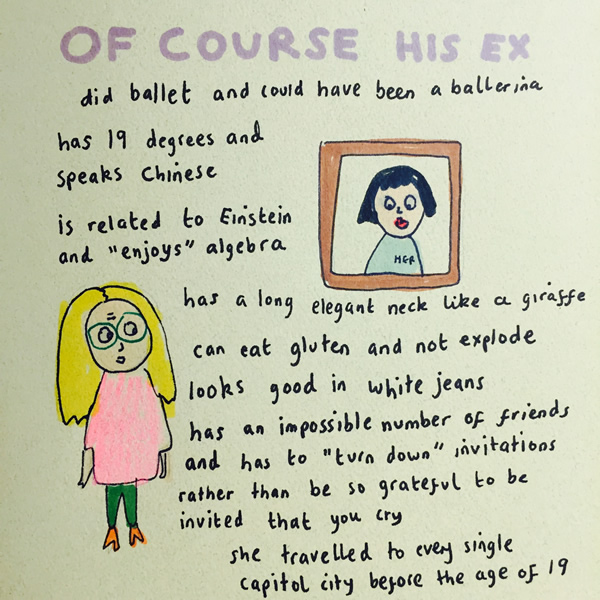 OF COURSE HIS EX
did ballet and could have been a ballerina
has 19 degrees and
speaks Chinese
is related to Einstein
and "enjoys" algebra
HER
has a long elegant neck like a giraffe
can eat gluten and not explode
looks good in white jeans
has an impossible number of friends
and has to "turn down" invitations
rather than be so grateful to be
invited that you cry
she travelled to every single
capitol city before the age of 19